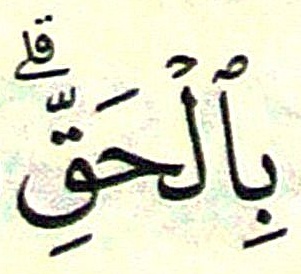 بِٱلْحَقِّۗ